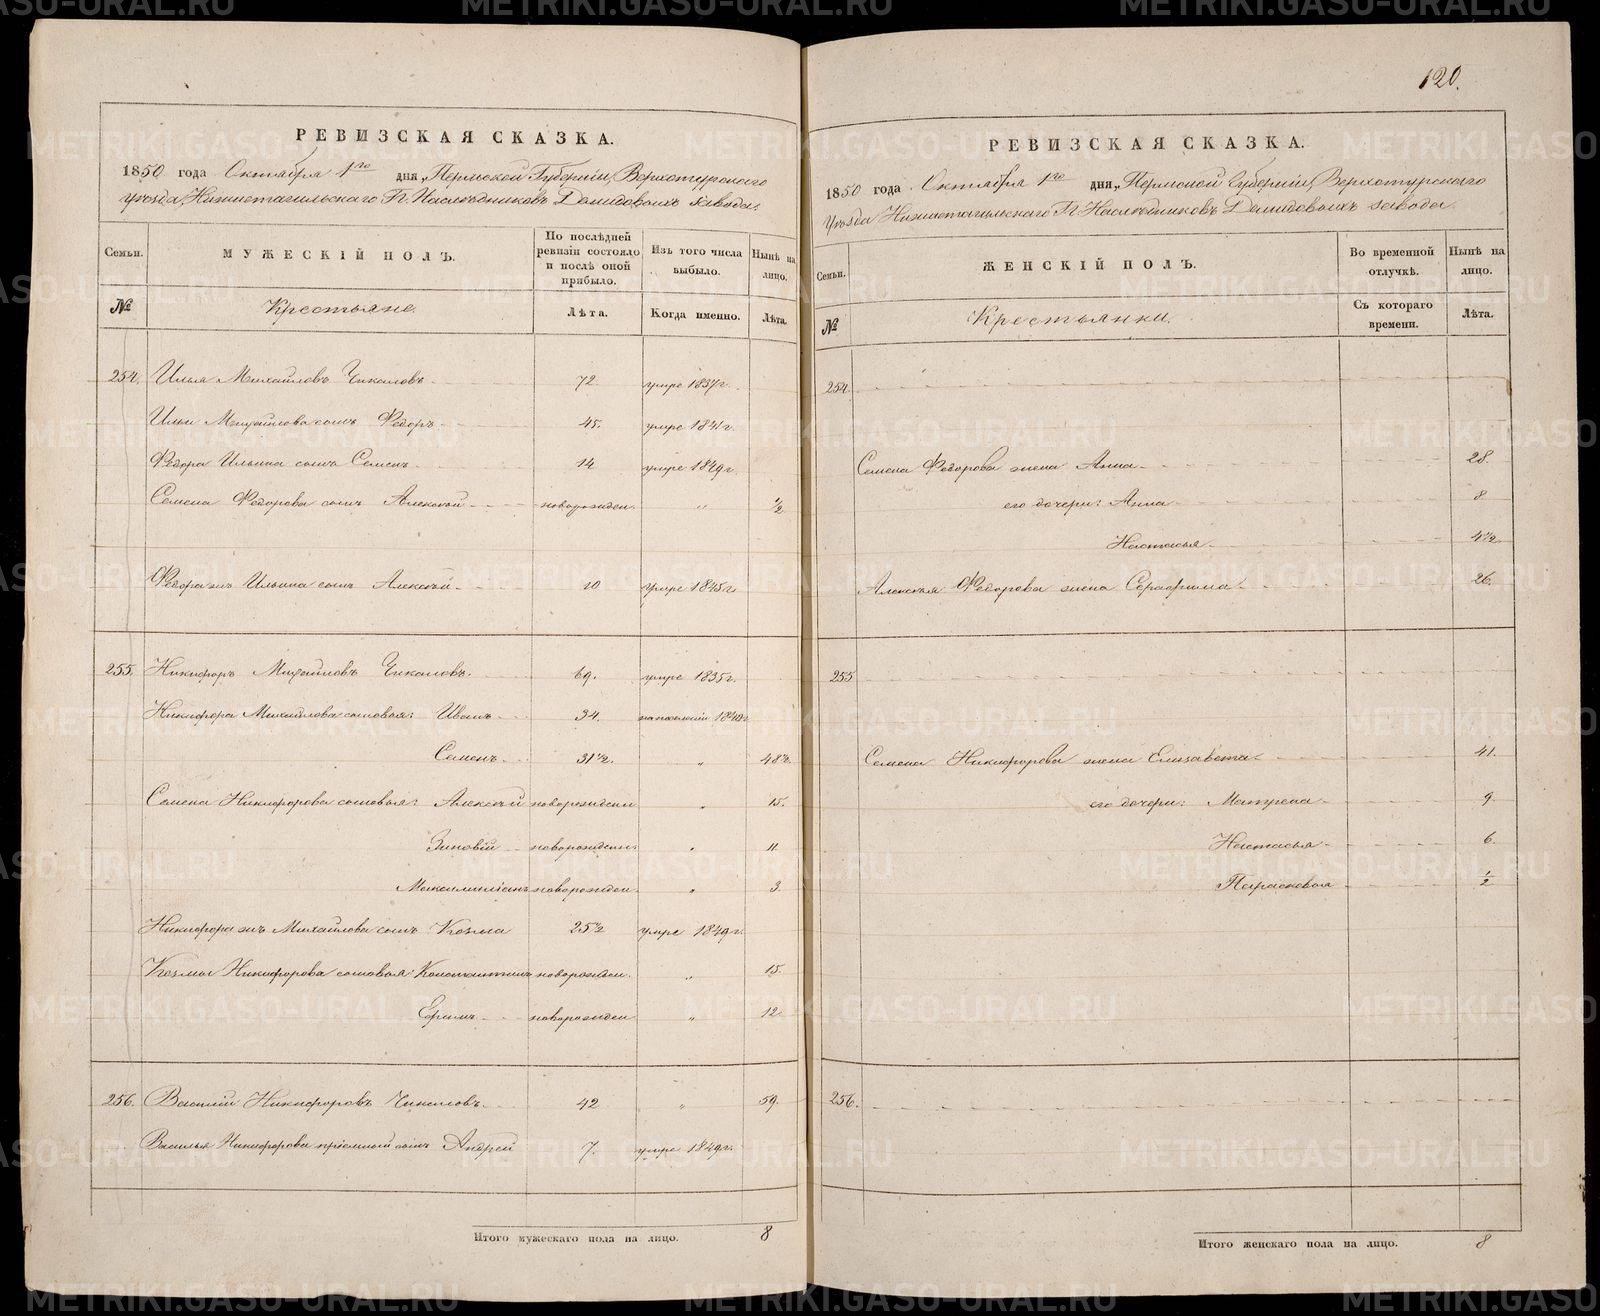 120.
РЕВИЗСКАЯ СКАЗКА.
1850 года Октября 1го дня, Пермской Губернии, Верхотурского
уѣзда, Нижнетагильского Гг. Наслѣдниковъ Демидовыхъ завода.
Семьи. МУЖЕСКІЙ ПОЛЪ. По послѣдней ревизіи состояло и послѣ оной прибыло. Изъ того числа выбыло. Нынѣ на лицо.
№ Крестьяне. Лѣта. Когда именно. Лѣта.
254. Илья Михайловъ Чикаловъ 72 умре 1837г.
Ильи Михайлова сынъ Федоръ 45. умре 1841г.
Федора Ильина сынъ Семенъ 14 умре 1849г.
Семена Федорова сынъ Алексѣй новорожден. " 1/2
Федора жъ Ильина сынъ Алексѣй 10 умре 1845г.
255. Никифоръ Михайловъ Чикаловъ. 69. умре 1835г.
Никифора Михайлова сыновья: Иванъ 34.
Семенъ 31 1/2. " 48 1/2.
Семена Никифорова сыновья: Алексѣй новорожден " 15.
Зиновій новорожден. " 11
Максимиліанъ новорожден. " 3.
Никифора жъ Михайлова сынъ Козма 25 1/2 умре 1849г.
Козмы Никифорова сыновья: Константинъ новорожден. " 15.
Ефимъ новорожден " 12.
256. Василій Никифоровъ Чикаловъ. 42 " 59.
Василья Никифорова пріемный сынъ Андрей 7. умре 1849г.
Итого мужескаго пола на лицо. 8
РЕВИЗСКАЯ СКАЗКА.
1850 года. Октября 1го дня, Пермской Губерніи, Верхотурского
Уѣзда Нижнетагильского Гг Наслѣдниковъ Демидовыхъ завода.
Семьи. ЖЕНСКІЙ ПОЛЪ. Во временной отлучкѣ. Нынѣ на лицо.
№ Крестьянки. Съ котораго времени. Лѣта.
254.
Семена Федорова жена Анна 28.
его дочери: Анна 8
Настасья 4 1/2
Алексѣя Федорова жена Серафима 26.
255
Семена Никифорова жена Елизавета 41.
его дочери: Матрена 9.
Настасья 6.
Парасковья 1/2
256.
Итого женскаго пола на лицо. 8
METRIKI.GASO-URAL.RU